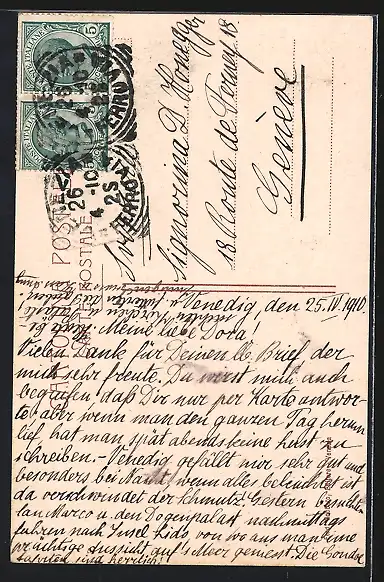 Signorina D. Honegger
18. Route de Ferney 18.
Genève
POST
POSTALE
Venedig, den 25. IV. 1910.
Meine liebe Dora!
Vielen Dank für Deinen lb. Brief, der
mich sehr freute. Du wirst mich auch
begreifen, daß Dir nur per Karte antwor-
te, aber wenn man den ganzen Tag herum
lief, hat man spät abends keine Lust zu
schreiben. - Venedig gefällt mir sehr gut und
besonders bei Nacht, wenn alles beleuchtet ist
da verschwindet der Schmutz. Gestern besuchten
San Marco u. den Dogenpalast nachmittags
fuhren nach Insel Lido, von wo aus man eine
prächtige Aussicht auf's Meer geniesst. Die Gondel
fahrten sind herrlich!